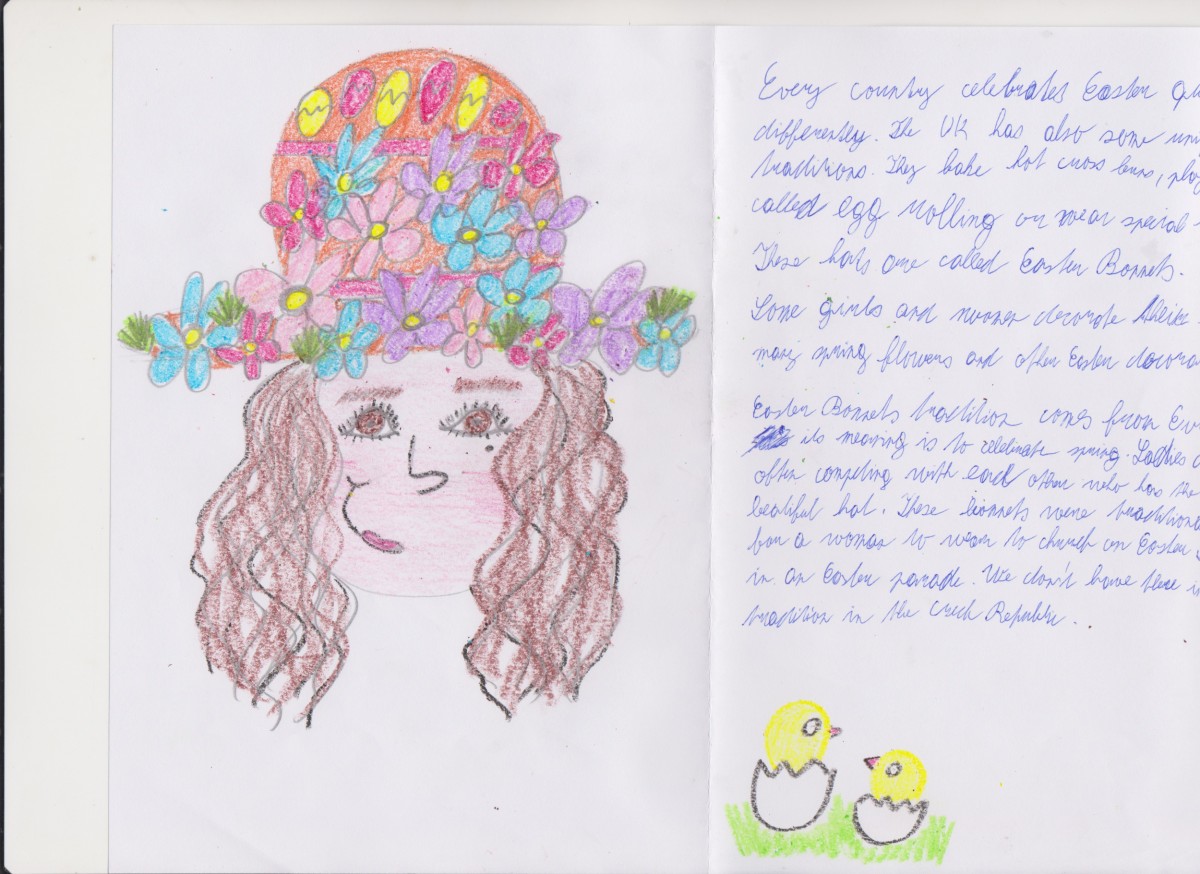 Every country celebrates Easter
differently. The UK has also some
traditions. They bake hot cross buns,
called egg rolling or wear special
These hats are called Easter Bonnets.
Some girls and women decorate their
many spring flowers and often Easter
Easter Bonnets tradition comes from
its meaning is to celebrate spring. Ladies
often competing with each other who has the
beautiful hat. These bonnets were
for a woman to wear to church on Easter
in an Easter parade. We don't have these
tradition in the Czech Republic.